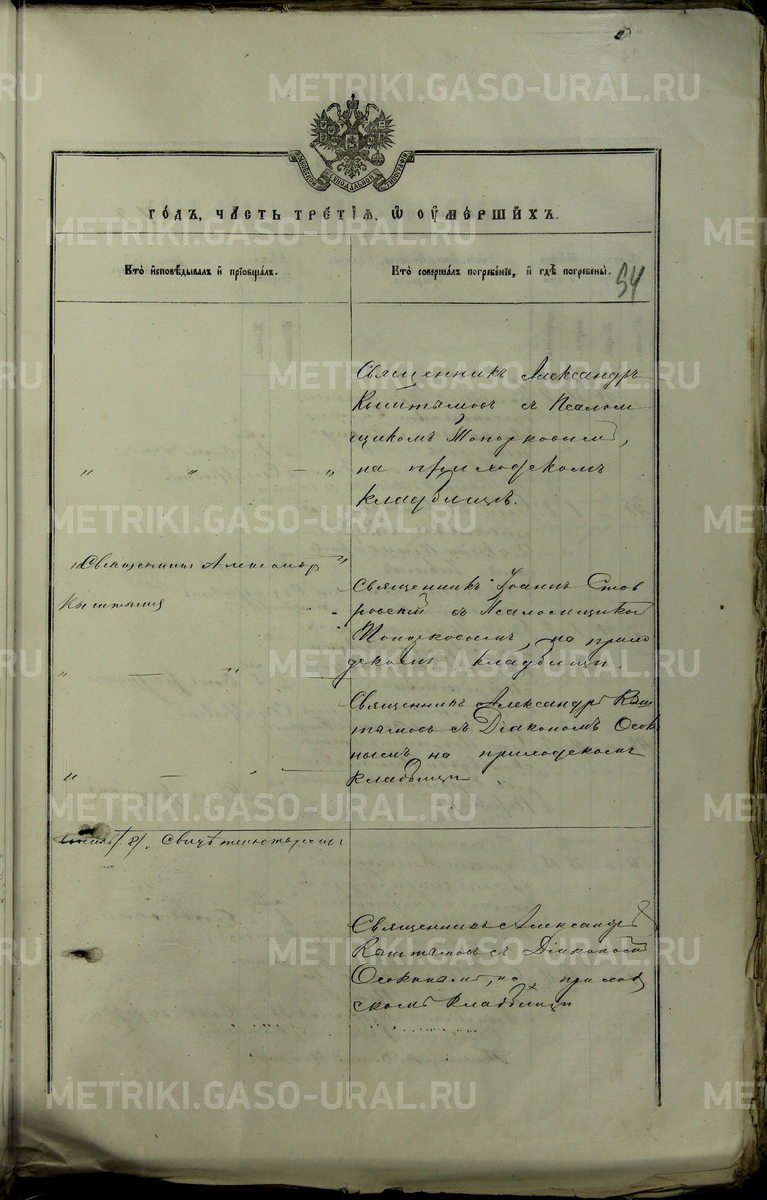 METRIKI.GASO-URAL.RU
54
ГОДЪ, ЧАСТЬ ТРЕТІЯ, Ѡ ОУМЕРШИХЪ.
Кто исповѣдывалъ и пріобщалъ.
Кто совершалъ погребеніе, и гдѣ погребены.
Священникъ Александръ
Кыштымовъ съ Псалом
щикомъ Топорковымъ,
на приходскомъ
кладбищѣ.
Священникъ Александръ
Священникъ Іоаннъ
съ Псаломщикомъ
Топорковымъ, на прихо
дскомъ кладбищи.
Священникъ Александръ Кыш
тымовъ съ Діакономъ Осок
нымъ на приходскомъ
кладбищи
Священникъ Александръ
Кыштымовъ съ Діакономъ
Осокинымъ, на приход
скомъ кладбищи